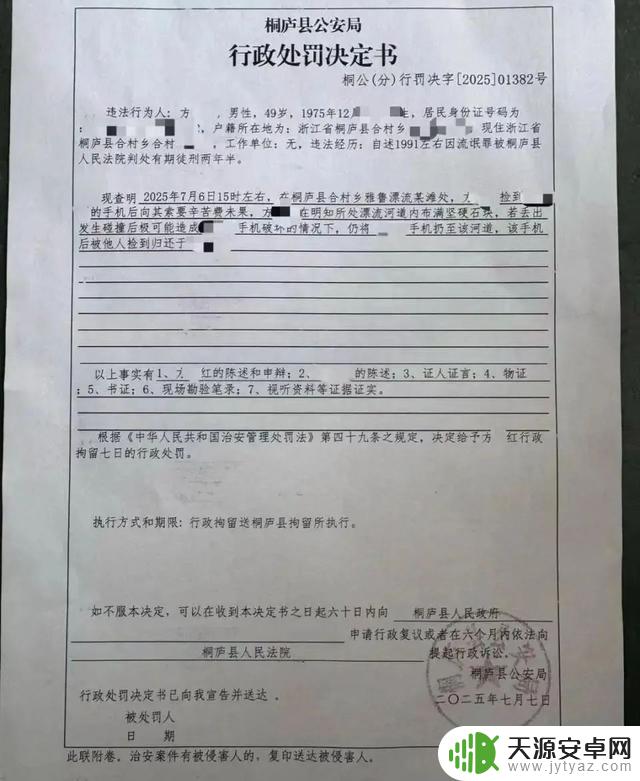 桐庐县公安局
行政处罚决定书
桐公(分)行罚决字[2025]01382号
违法行为人：方 ，男性，49岁，1975年12 生，居民身份证号码为
： ，户籍所在地为：浙江省桐庐县合村乡 现住浙江省
桐庐县合村乡合村 ，工作单位：无，违法经历：自述1991左右因流氓罪被桐庐县
人民法院判处有期徒刑两年半。
现查明 2025年7月6日15时左右，在桐庐县合村乡雅鲁漂流某滩处， 捡到
的手机后向其索要辛苦费未果，方 在明知所处漂流河道内布满坚硬石块，若丢出
发生碰撞后极可能造成 手机破坏的情况下，仍将 手机扔至该河道，该手机
后被他人捡到归还于
以上事实有1、 红的陈述和申辩；2、 的陈述；3、证人证言；4、物证
；5、书证；6、现场勘验笔录；7、视听资料等证据证实。
根据《中华人民共和国治安管理处罚法》第四十九条之规定，决定给予方 红行政
拘留七日的行政处罚。
执行方式和期限：行政拘留送桐庐县拘留所执行。
如不服本决定，可以在收到本决定书之日起六十日内向 桐庐县人民政府
申请行政复议或者在六个月内依法向
桐庐县人民法院 提起行政诉讼。
桐庐县公安局
二〇二五年七月七日
行政处罚决定书已向我宣告并送达 。
被处罚人
日 期
此联附卷。治安案件有被侵害人的，复印送达被侵害人。
天源安卓网
www.jytyaz.com